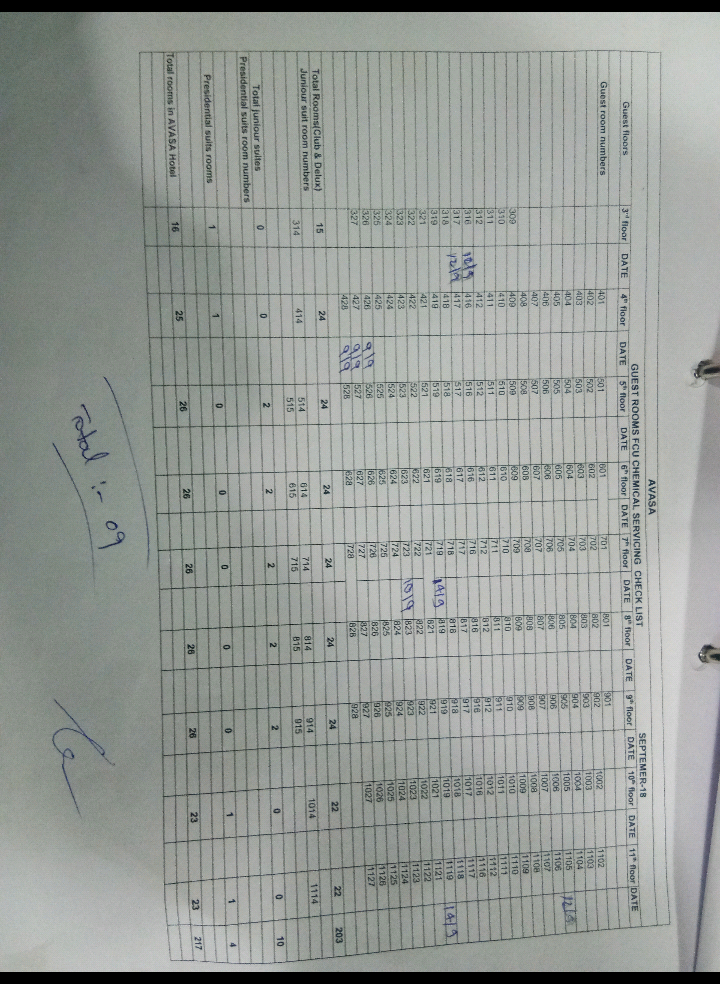 AVASA
GUEST ROOMS FCU CHEMICAL SERVICING CHECK LIST SEPTEMER-18
Guest floors 3rd floor DATE 4th floor DATE 5th floor DATE 6th floor DATE 7th floor DATE 8th floor DATE 9th floor DATE 10th floor DATE 11th floor DATE
Guest room numbers 401 501 601 701 801 901
402 502 602 702 802 902 1002 1102
403 503 603 703 803 903 1003 1103
404 504 604 704 804 904 1004 1104
405 505 605 705 805 905 1005 1105 12/9
406 506 606 706 806 906 1006 1106
407 507 607 707 807 907 1007 1107
408 508 608 708 808 908 1008 1108
309 409 509 609 709 809 909 1009 1109
310 410 510 610 710 810 910 1010 1110
311 411 511 611 711 811 911 1011 1111
312 412 512 612 712 812 912 1012 1112
316 12/9 416 516 616 716 816 916 1016 1116
317 12/9 417 517 617 717 817 917 1017 1117
318 418 518 618 718 818 918 1018 1118
319 419 519 619 719 14/9 819 919 1019 1119 14/9
321 421 521 621 721 821 921 1021 1121
322 422 522 622 722 822 922 1022 1122
323 423 523 623 723 10/9 823 923 1023 1123
324 424 524 624 724 824 924 1024 1124
325 425 525 625 725 825 925 1025 1125
326 426 9/9 526 626 726 826 926 1026 1126
327 427 9/9 527 627 727 827 927 1027 1127
428 9/9 528 628 728 828 928
Total Rooms(Club & Delux) 15 24 24 24 24 24 24 22 22 203
Juniour suit room numbers 314 414 514 614 714 814 914 1014 1114
515 615 715 815 915
Total juniour suites 0 0 2 2 2 2 2 0 0 10
Presidential suits room numbers
Presidential suits rooms 1 1 0 0 0 0 0 1 1 4
Total rooms in AVASA Hotel 16 25 26 26 26 26 26 23 23 217
Total :- 09